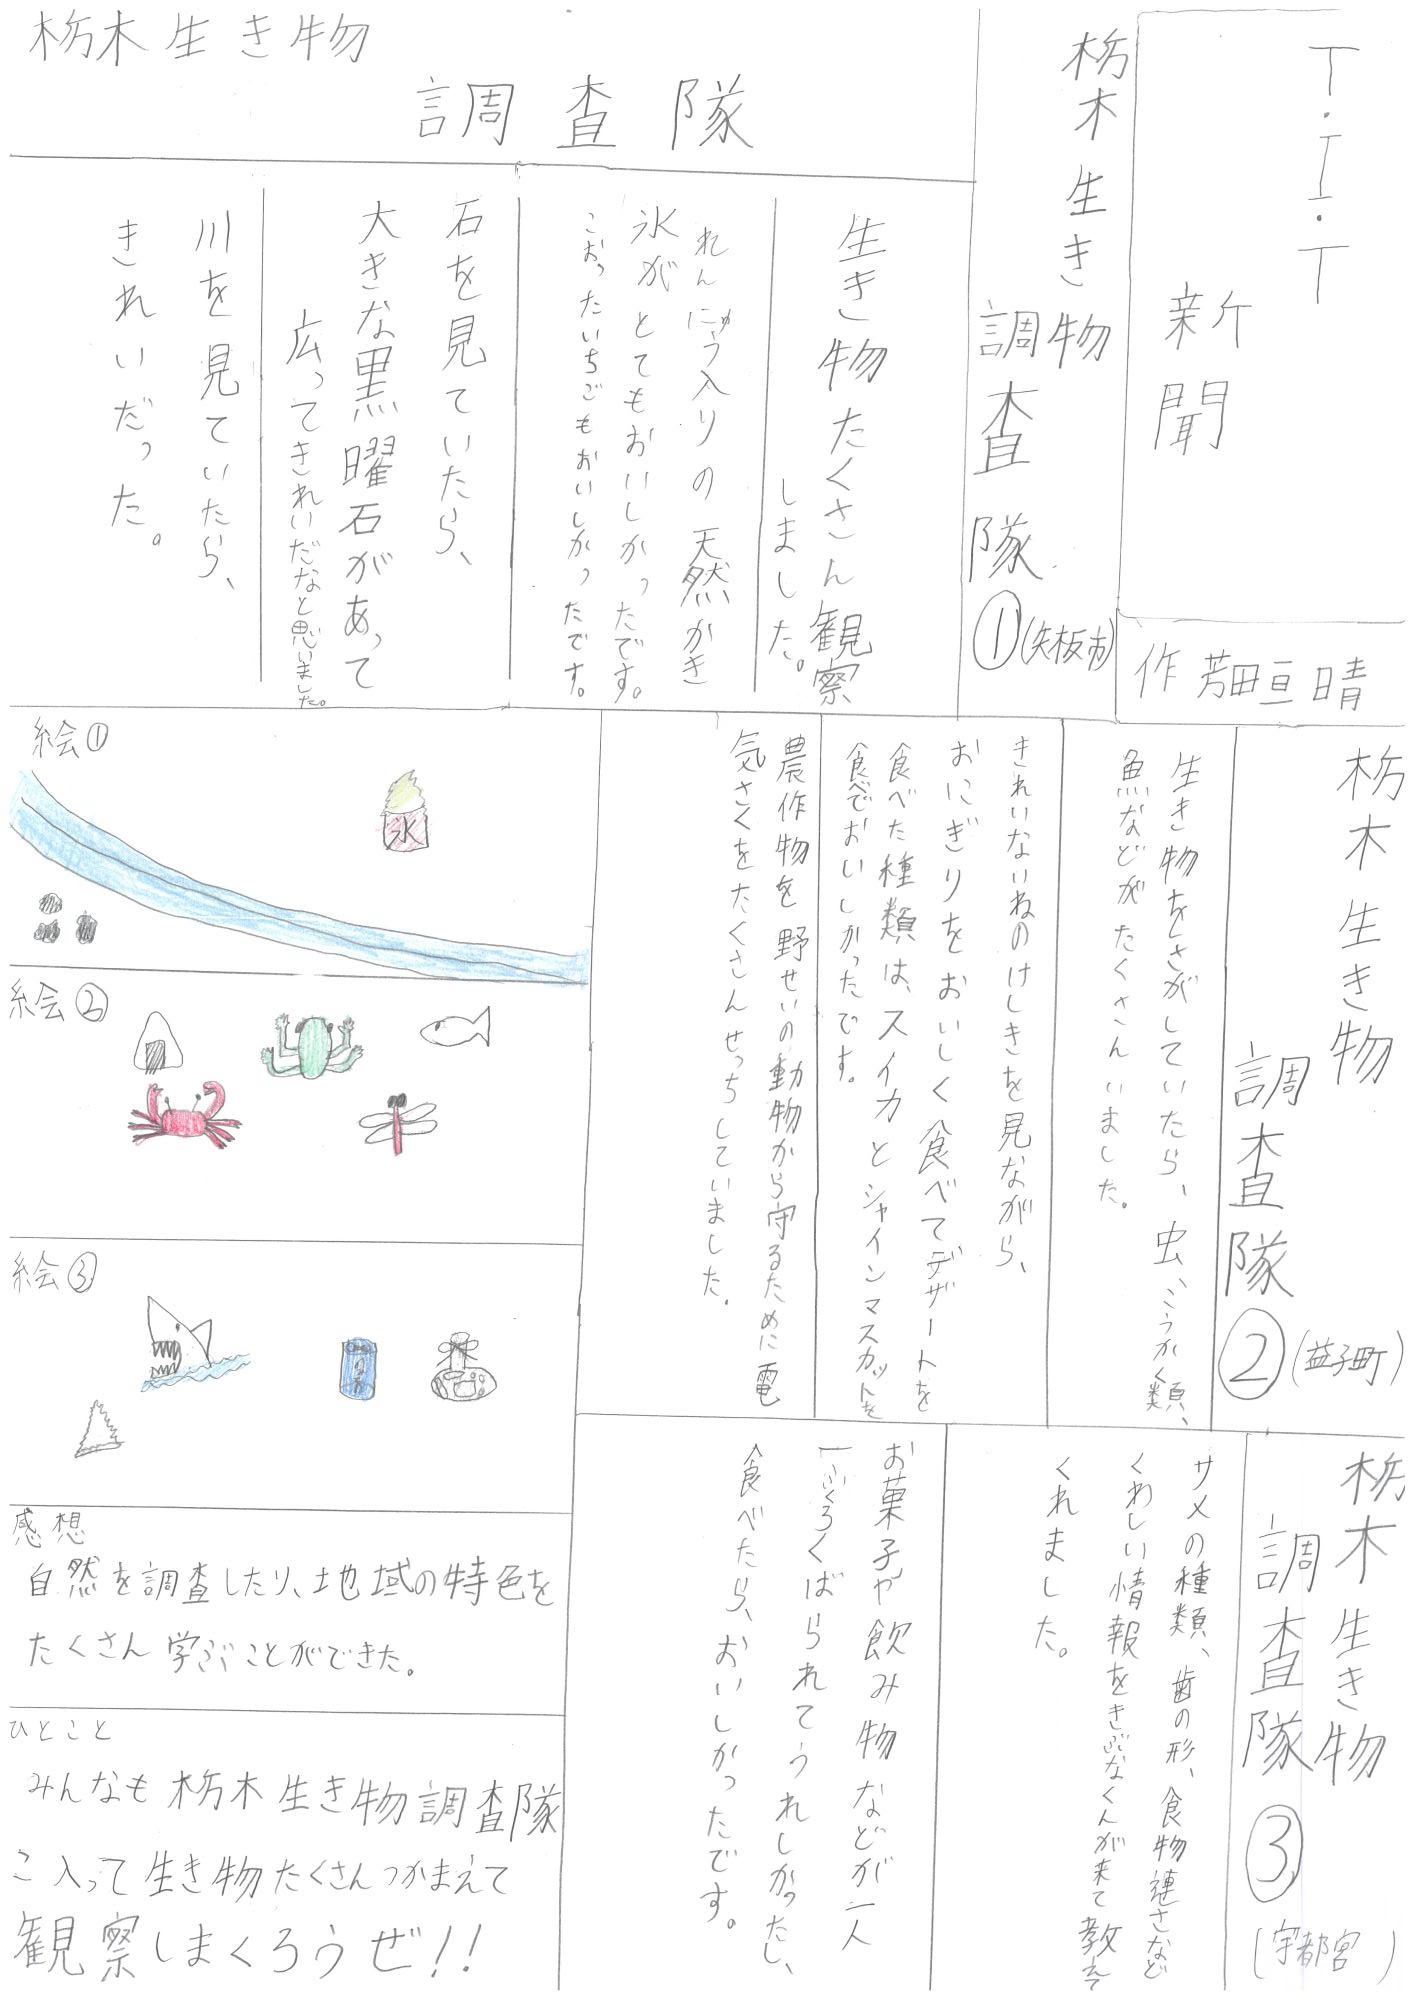 T.I.T
新聞
作 芳田亘晴
栃木生き物
調査隊
栃木生き物
調査隊①(矢板市)
生き物たくさん観察
しました。
れんにゅう入りの天然かき
氷がとてもおいしかったです。
こおったいちごもおいしかったです。
石を見ていたら、
大きな黒曜石があって
広ってきれいだなと思いました。
川を見ていたら、
きれいだった。
栃木生き物
調査隊②(益子町)
生き物をさがしていたら、虫、こうかく類、
魚などがたくさんいました。
きれいないねのけしきを見ながら、
おにぎりをおいしく食べてデザートを
食べた種類は、スイカとシャインマスカットを
食べておいしかったです。
農作物を野せいの動物から守るために電
気さくをたくさんせっちしていました。
栃木生き物
調査隊③(宇都宮)
サメの種類、歯の形、食物連さなど
くわしい情報をきぶなくんが来て教えて
くれました。
お菓子や飲み物などが一人
一ふくろくばられてうれしかったし、
食べたら、おいしかったです。
絵①
氷
絵②
絵③
感想
自然を調査したり、地域の特色を
たくさん学ぶことができた。
ひとこと
みんなも栃木生き物調査隊
こ入って生き物たくさんつかまえて
観察しまくろうぜ!!